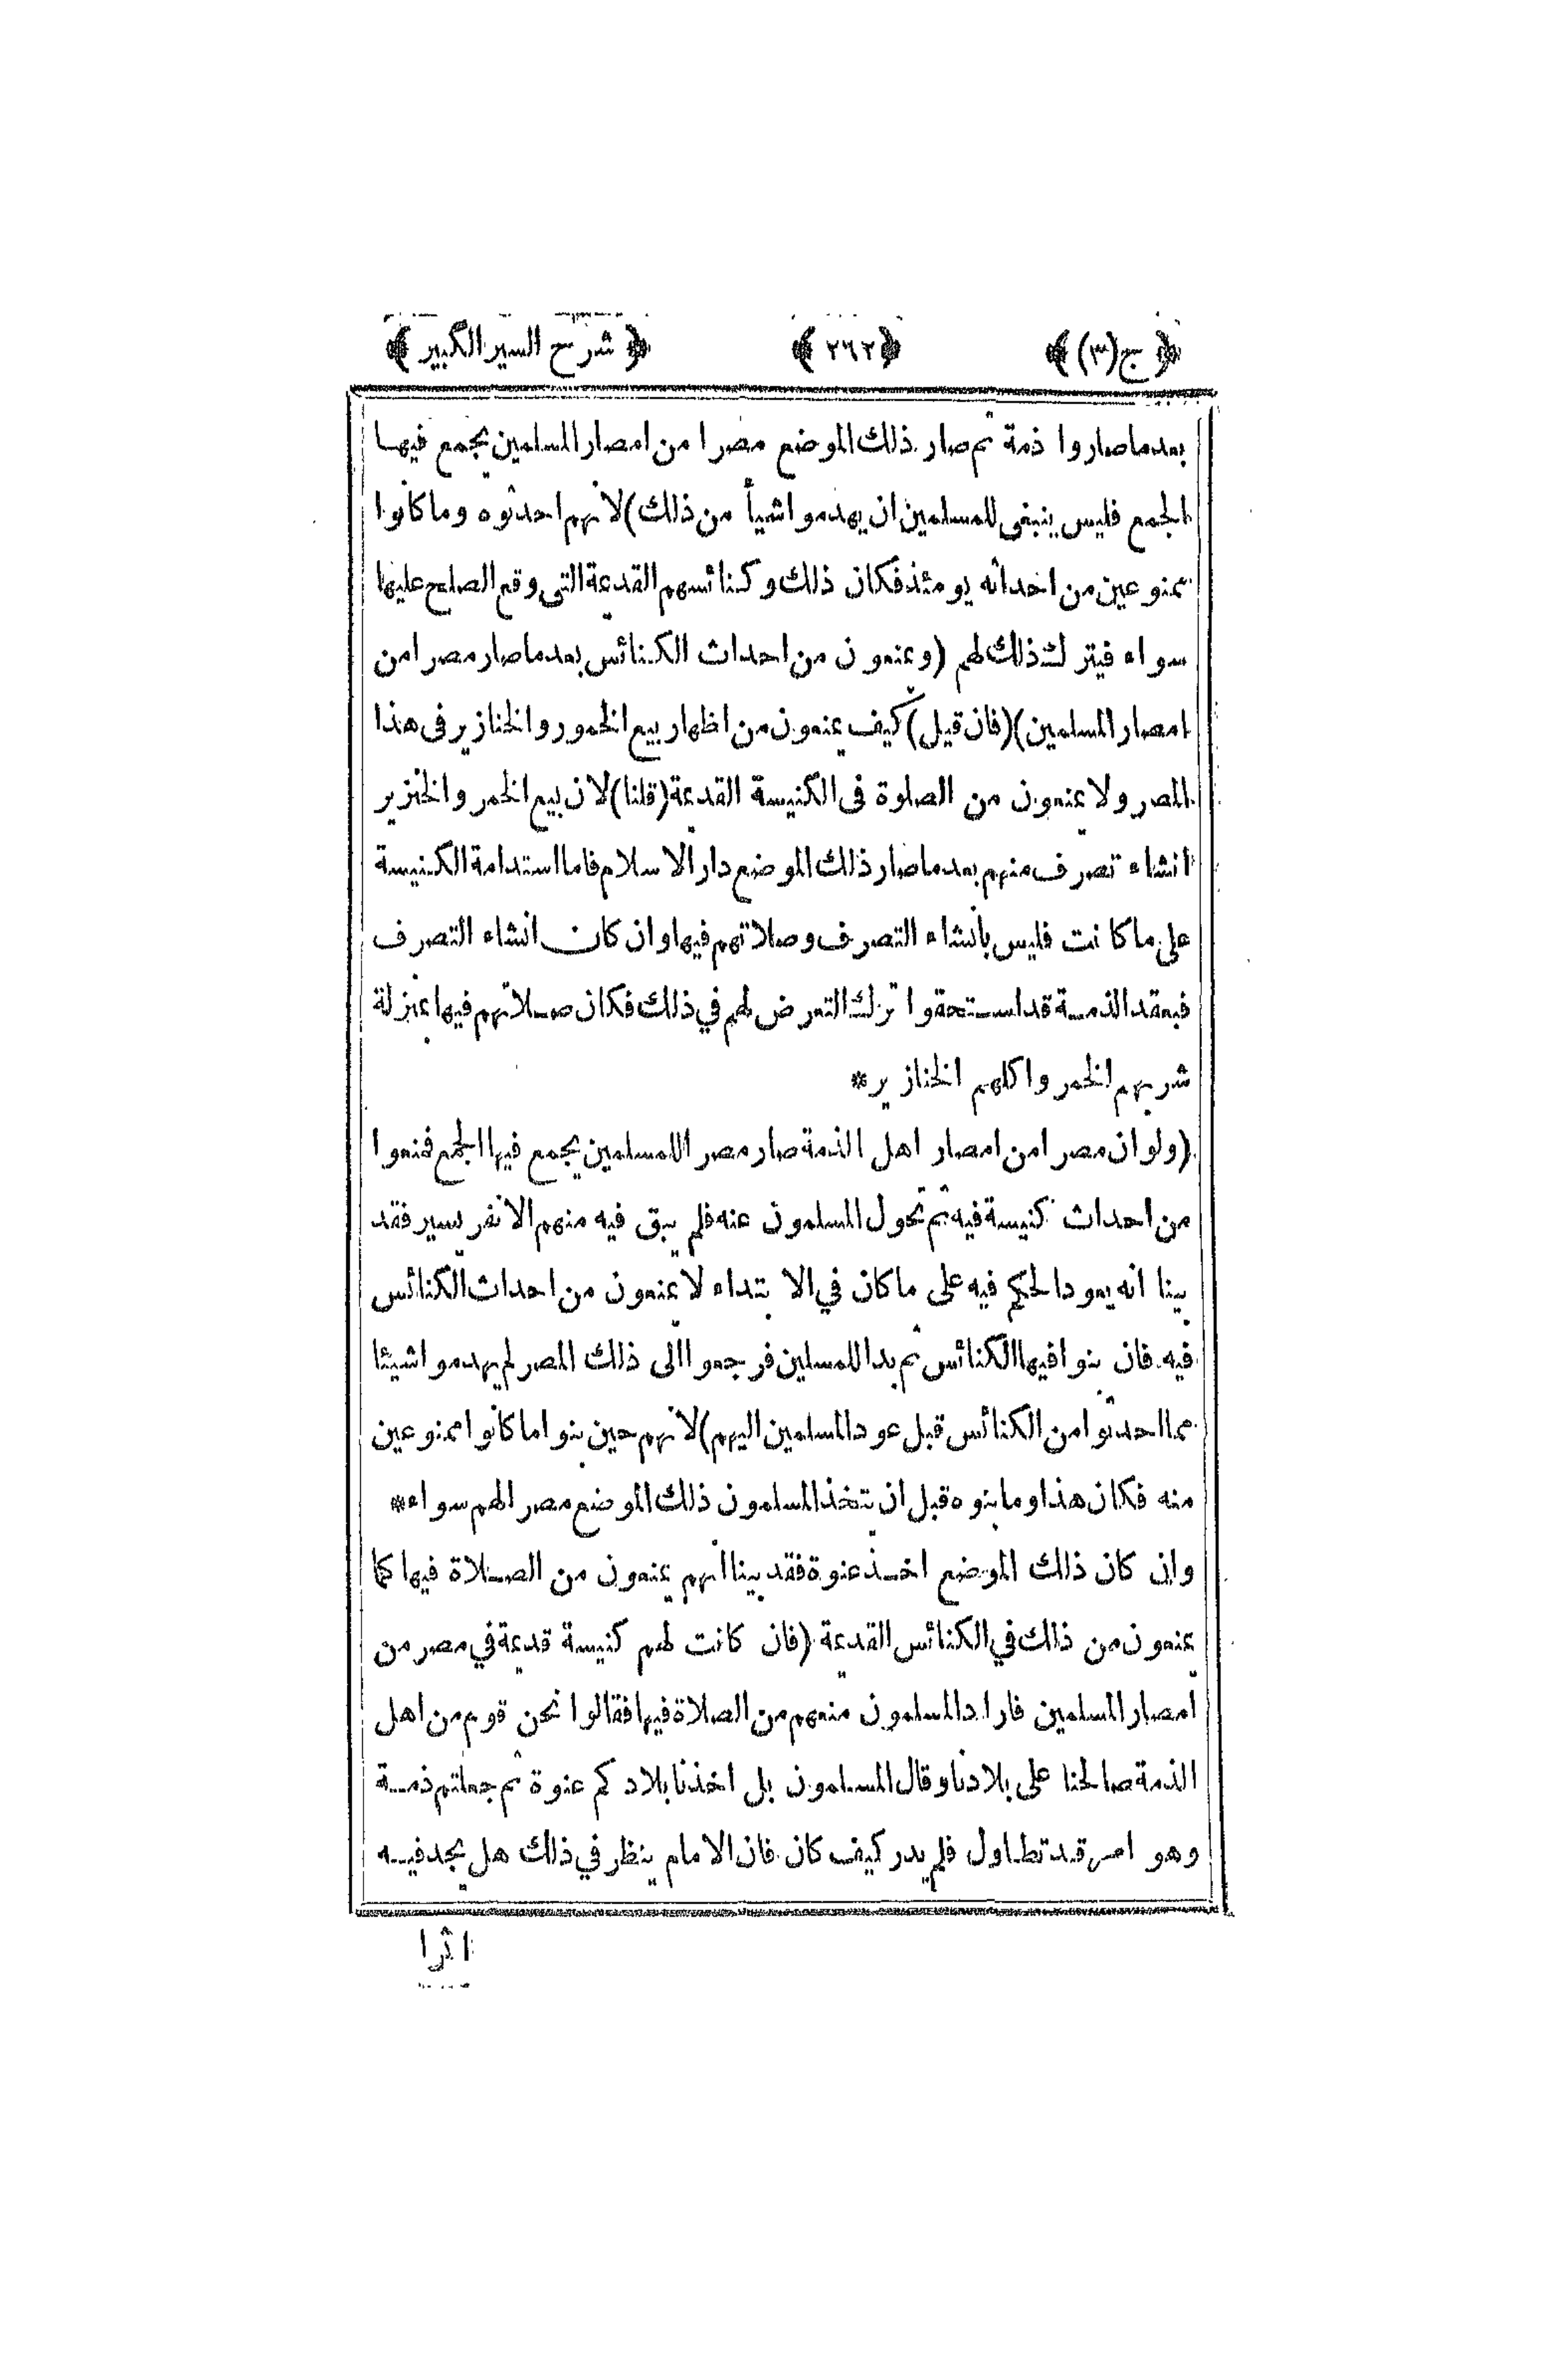 ﴿ ج(٣) ﴾ ﴿ ٢٦٢ ﴾ ﴿ شرح السير الكبير ﴾
بعدما صاروا ذمة ثم صار ذلك الموضع مصرا من امصار المسلمين يجمع فيها
الجمع فليس ينبغى للمسلمين ان يهدموا شيأ من ذلك) لانهم احدثوه وما كانوا
ممنوعين من احداثه يومئذ فكان ذلك وكنائسهم القديمة التى وقع الصلح عليها
سواء فيترك ذلك لهم (ويمنعون من احداث الكنائس بعدما صار مصرا من
امصار المسلمين) (فان قيل) كيف يمنعون من اظهار بيع الخمور والخنازير فى هذا
المصر ولا يمنعون من الصلوة فى الكنيسة القديمة (قلنا) لان بيع الخمر والخنزير
انشاء تصرف منهم بعدما صار ذلك الموضع دار الاسلام فاما استدامة الكنيسة
على ما كانت فليس بانشاء التصرف وصلاتهم فيها وان كان انشاء التصرف
فبعقد الذمة قد استحقوا ترك التعرض لهم في ذلك فكان صلاتهم فيها بمنزلة
شربهم الخمر واكلهم الخنازير *
(ولو ان مصرا من امصار اهل الذمة صار مصرا للمسلمين يجمع فيها الجمع فمنعوا
من احداث كنيسة فيه ثم تحول المسلمون عنه فلم يبق فيه منهم الا نفر يسير فقد
بينا انه يعود الحكم فيه على ما كان في الابتداء لا يمنعون من احداث الكنائس
فيه فان بنوا فيها الكنائس ثم بدا للمسلمين فرجعوا الى ذلك المصر لم يهدموا شيئا
مما احدثوا من الكنائس قبل عود المسلمين اليهم) لانهم حين بنوا ما كانوا ممنوعين
منه فكان هذا وما بنوه قبل ان يتخذ المسلمون ذلك الموضع مصرا لهم سواء *
وان كان ذلك الموضع اخذ عنوة فقد بينا انهم يمنعون من الصلاة فيها كما
يمنعون من ذلك في الكنائس القديمة (فان كانت لهم كنيسة قديمة في مصر من
امصار المسلمين فاراد المسلمون منعهم من الصلاة فيها فقالوا نحن قوم من اهل
الذمة صالحنا على بلادنا وقال المسلمون بل اخذنا بلادكم عنوة ثم جعلتم ذمة
وهو امر قد تطاول فلم يدر كيف كان فان الامام ينظر في ذلك هل يجد فيه
اثرا